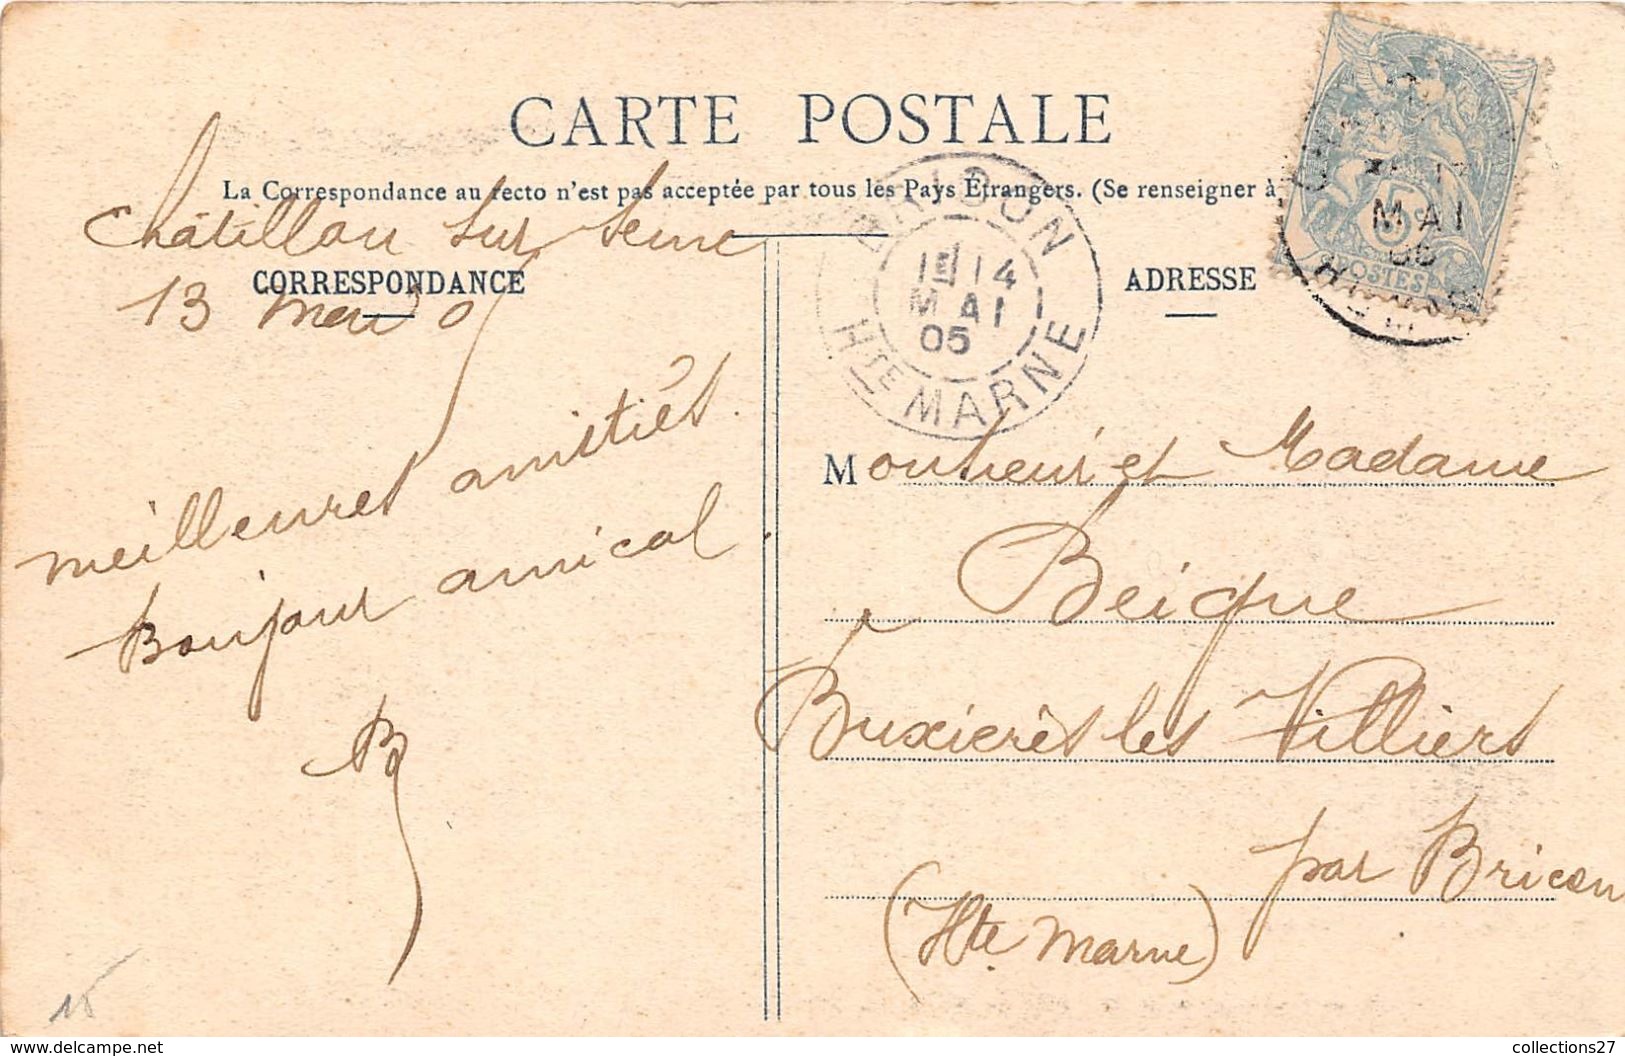 CARTE POSTALE
La Correspondance au recto n'est pas acceptée par tous les Pays Étrangers. (Se renseigner à
Châtillon sur Seine
CORRESPONDANCE
13 Mai 05
meilleures amitiés.
Bonjour amical.
B
15
BRICON
1E 14
MAI
05
Hte MARNE
ADRESSE
MAI
05
5c
POSTES
Monsieur et Madame
Beique
Buxières les Villiers
par Bricon
(Hte Marne)
delcampe.net
collections27